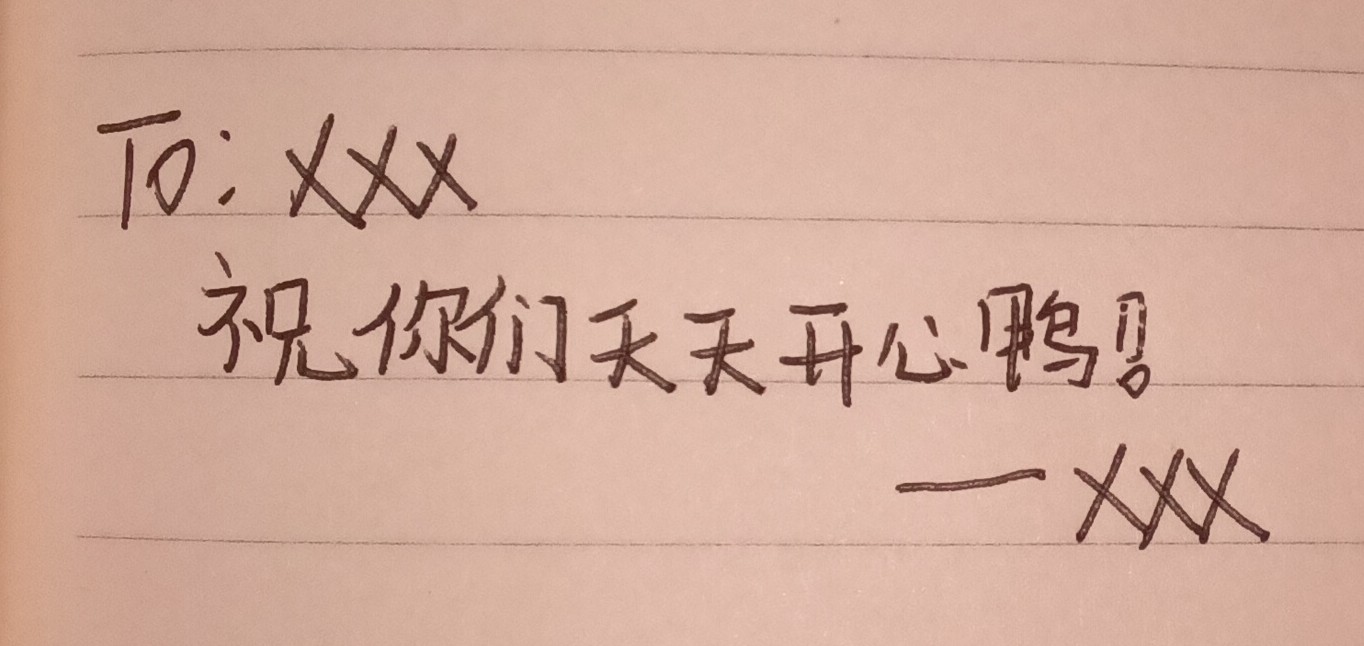 To: XXX
祝你们天天开心鸭!
—XXX